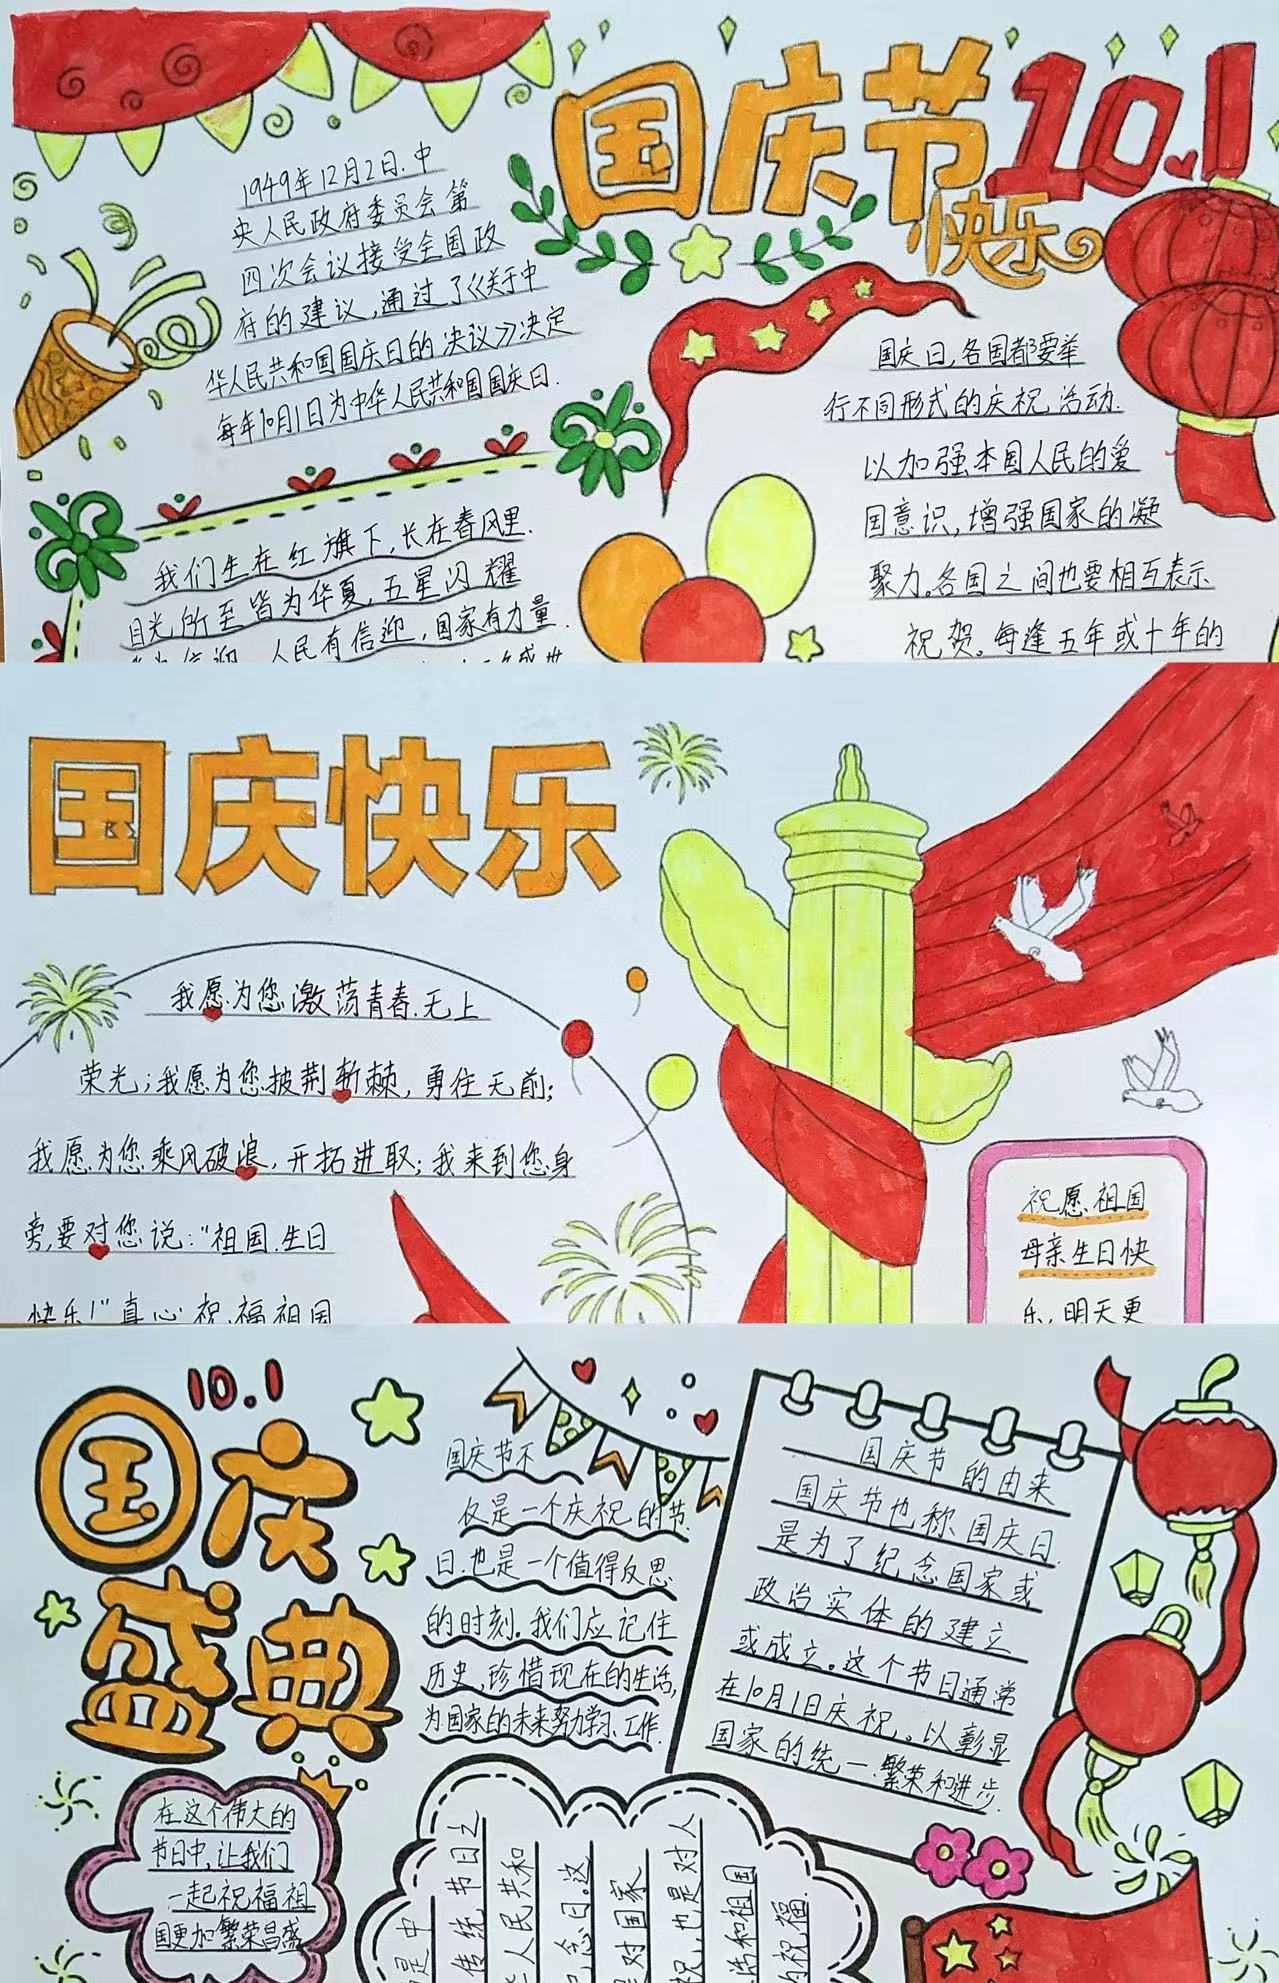 国庆节10.1
快乐
1949年12月2日.中
央人民政府委员会第
四次会议接受全国政
府的建议,通过了《关于中
华人民共和国国庆日的决议》决定
每年10月1日为中华人民共和国国庆日.
我们生在红旗下,长在春风里.
目光所至皆为华夏,五星闪耀
人民有信迎,国家有力量.
国庆日,各国都要举
行不同形式的庆祝活动.
以加强本国人民的爱
国意识,增强国家的凝
聚力。各国之间也要相互表示
祝贺。每逢五年或十年的
国庆快乐
我愿为您激荡青春.无上
荣光;我愿为您披荆斩棘,勇往无前;
我愿为您乘风破浪,开拓进取;我来到您身
旁,要对您说:“祖国.生日
快乐!”真心祝福祖国
祝愿祖国
母亲生日快
乐,明天更
10.1
国庆
盛典
国庆节不
仅是一个庆祝的节
日.也是一个值得反思
的时刻。我们应记住
历史,珍惜现在的生活,
为国家的未来努力学习、工作.
国庆节的由来
国庆节也称国庆日.
是为了纪念国家或
政治实体的建立
或成立。这个节日通常
在10月1日庆祝。以彰显
国家的统一.繁荣和进步.
在这个伟大的
节日中,让我们
一起祝福祖
国更加繁荣昌盛
是中
传统节日之
人民共和
念日。这
是对国家
祝,也是对人
选和祖国
的祝福.